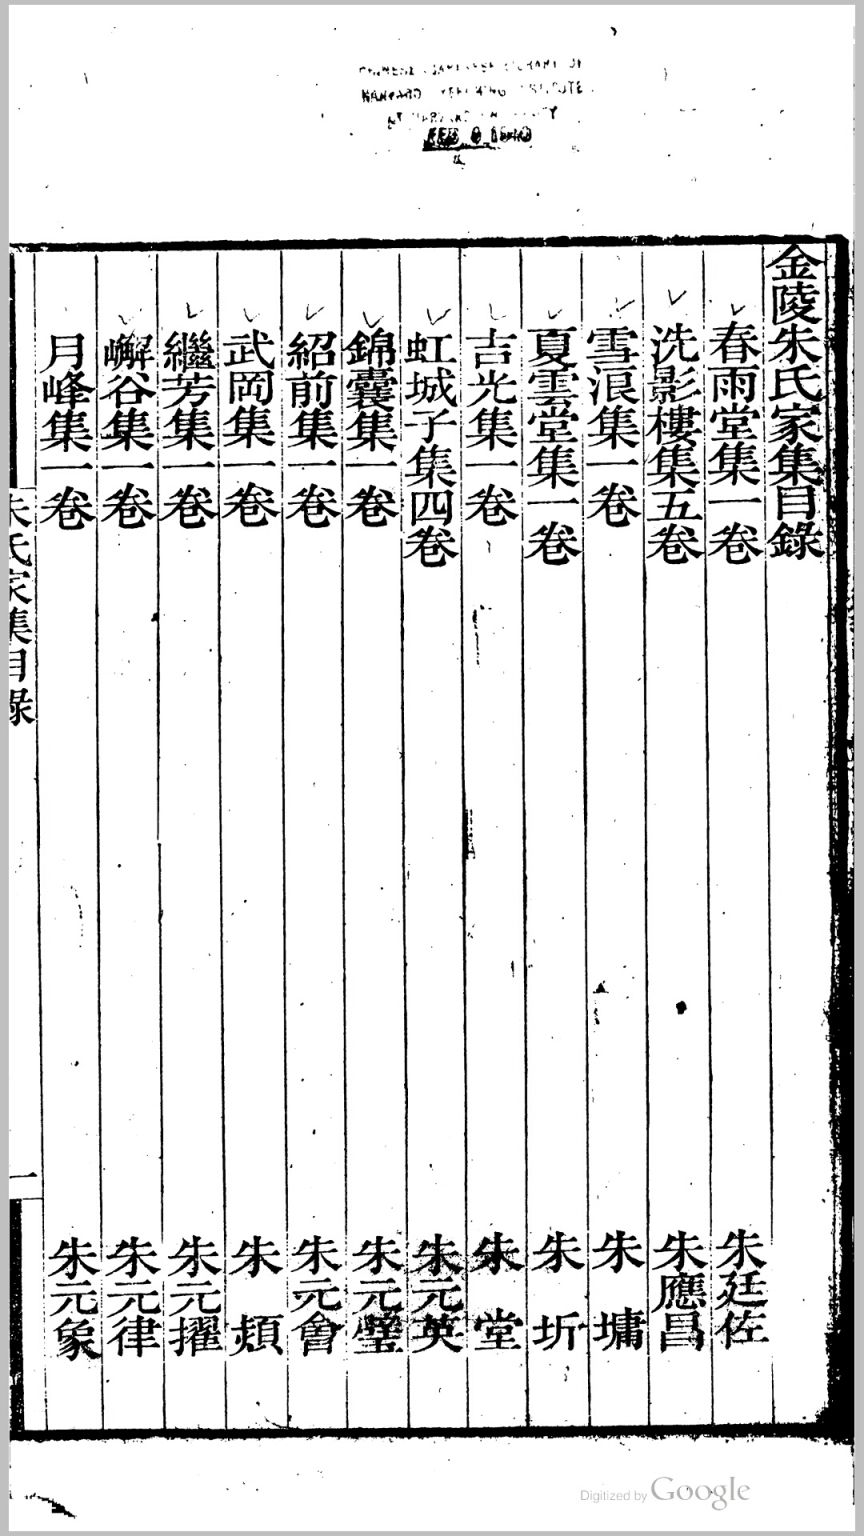 CHINESE JAPANESE LIBRARY OF
HARVARD YENCHING INSTITUTE
AT HARVARD UNIVERSITY
FEB 9 1940
金陵朱氏家集目錄
春雨堂集一卷 朱廷佐
洗影樓集五卷 朱應昌
雪浪集一卷 朱墉
夏雲堂集一卷 朱圻
吉光集一卷 朱堂
虹城子集四卷 朱元英
錦囊集一卷 朱元璧
紹前集一卷 朱元會
武岡集一卷 朱頛
繼芳集一卷 朱元擢
嶰谷集一卷 朱元律
月峰集一卷 朱元象
朱氏家集目錄
一
Digitized by Google